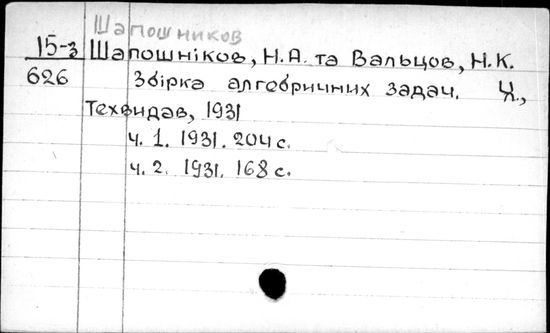 Шапошников
15-3 Шапошніков, Н.А. та Вальцов, Н.К.
626 Збірка алгебричних задач. Х.,
Техвидав, 1931
ч. 1. 1931. 204 с.
ч. 2. 1931. 168 с.